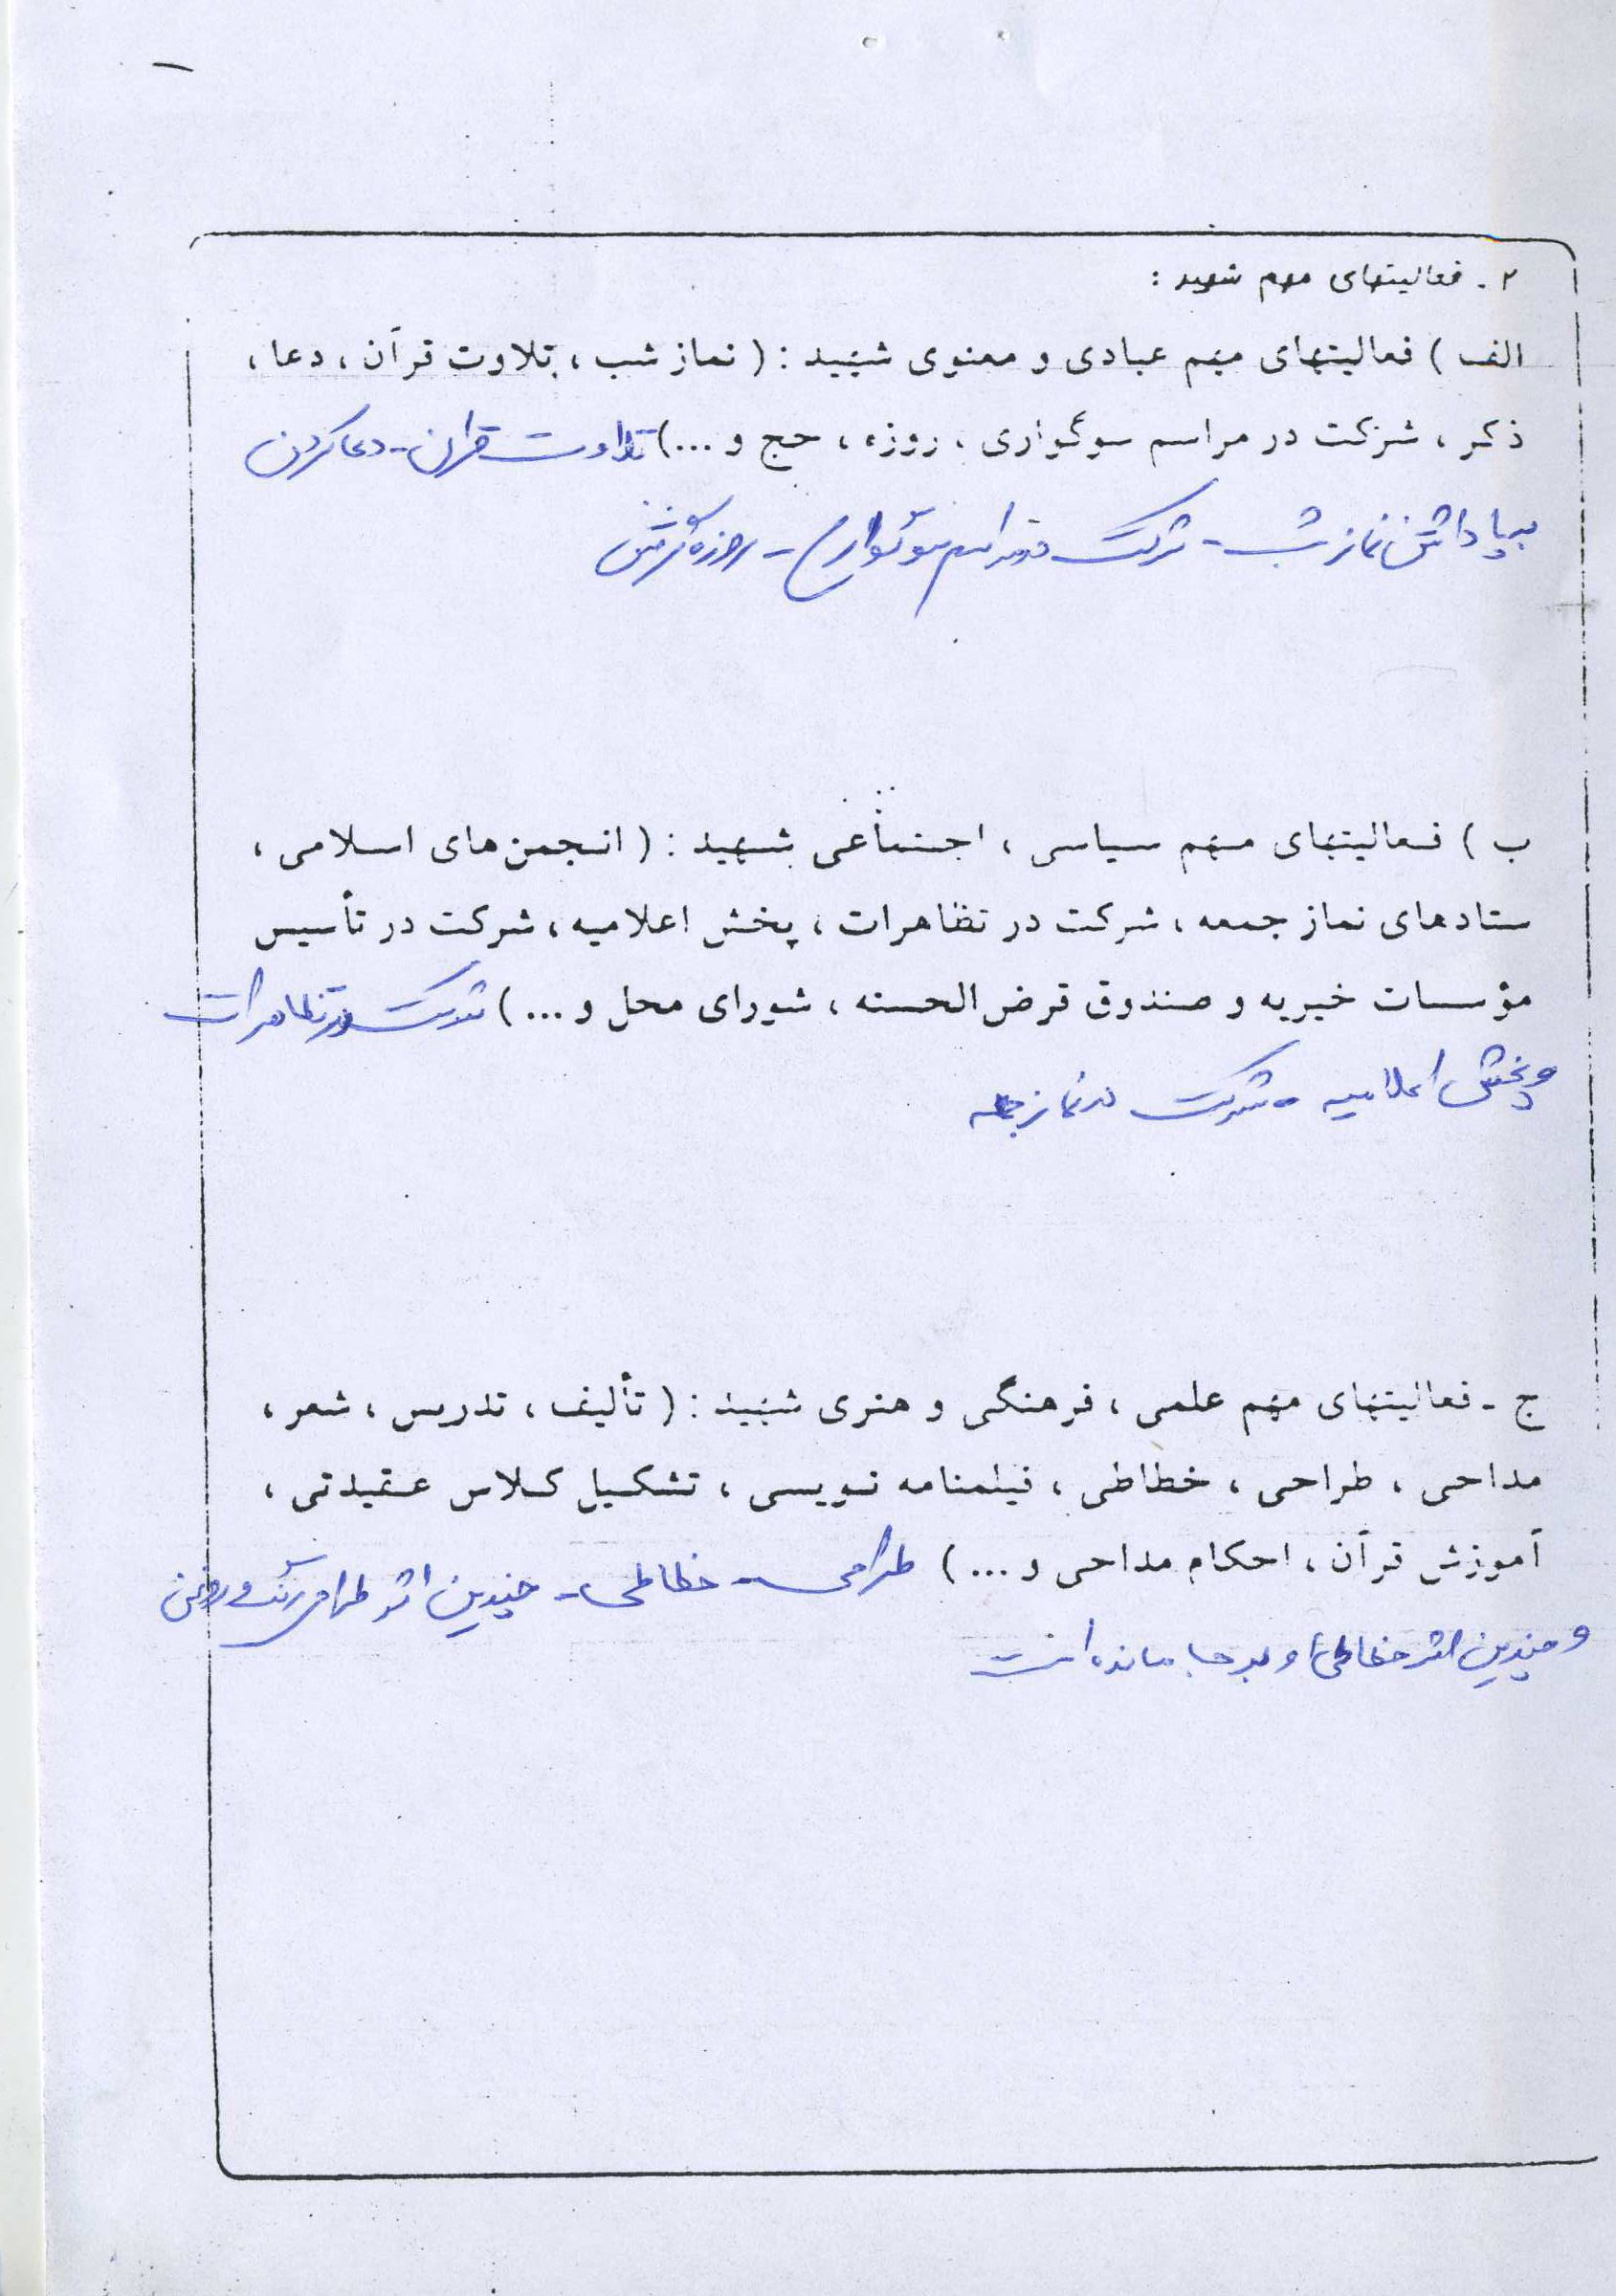 ۲ . فعالیتهای مهم شهید :
الف ) فعالیتهای مهم عبادی و معنوی شهید : ( نماز شب ، تلاوت قرآن ، دعا ،
ذکر ، شرکت در مراسم سوگواری ، روزه ، حج و ... ) تلاوت قران - دعا کردن
بپا داشتن نماز شب - شرکت در مراسم سوگواری - روزه گرفتن
ب ) فعالیتهای مهم سیاسی ، اجتماعی شهید : ( انجمن های اسلامی ،
ستادهای نماز جمعه ، شرکت در تظاهرات ، پخش اعلامیه ، شرکت در تأسیس
مؤسسات خیریه و صندوق قرض الحسنه ، شورای محل و ... ) شرکت در تظاهرات
و پخش اعلامیه - شرکت در نماز جمعه
ج - فعالیتهای مهم علمی ، فرهنگی و هنری شهید : ( تألیف ، تدریس ، شعر ،
مداحی ، طراحی ، خطاطی ، فیلمنامه نویسی ، تشکیل کلاس عقیدتی ،
آموزش قرآن ، احکام مداحی و ... ) طراحی - خطاطی - چندین اثر طراحی رنگ و روغن
و چندین اثر خطاطی از او بر جا مانده است